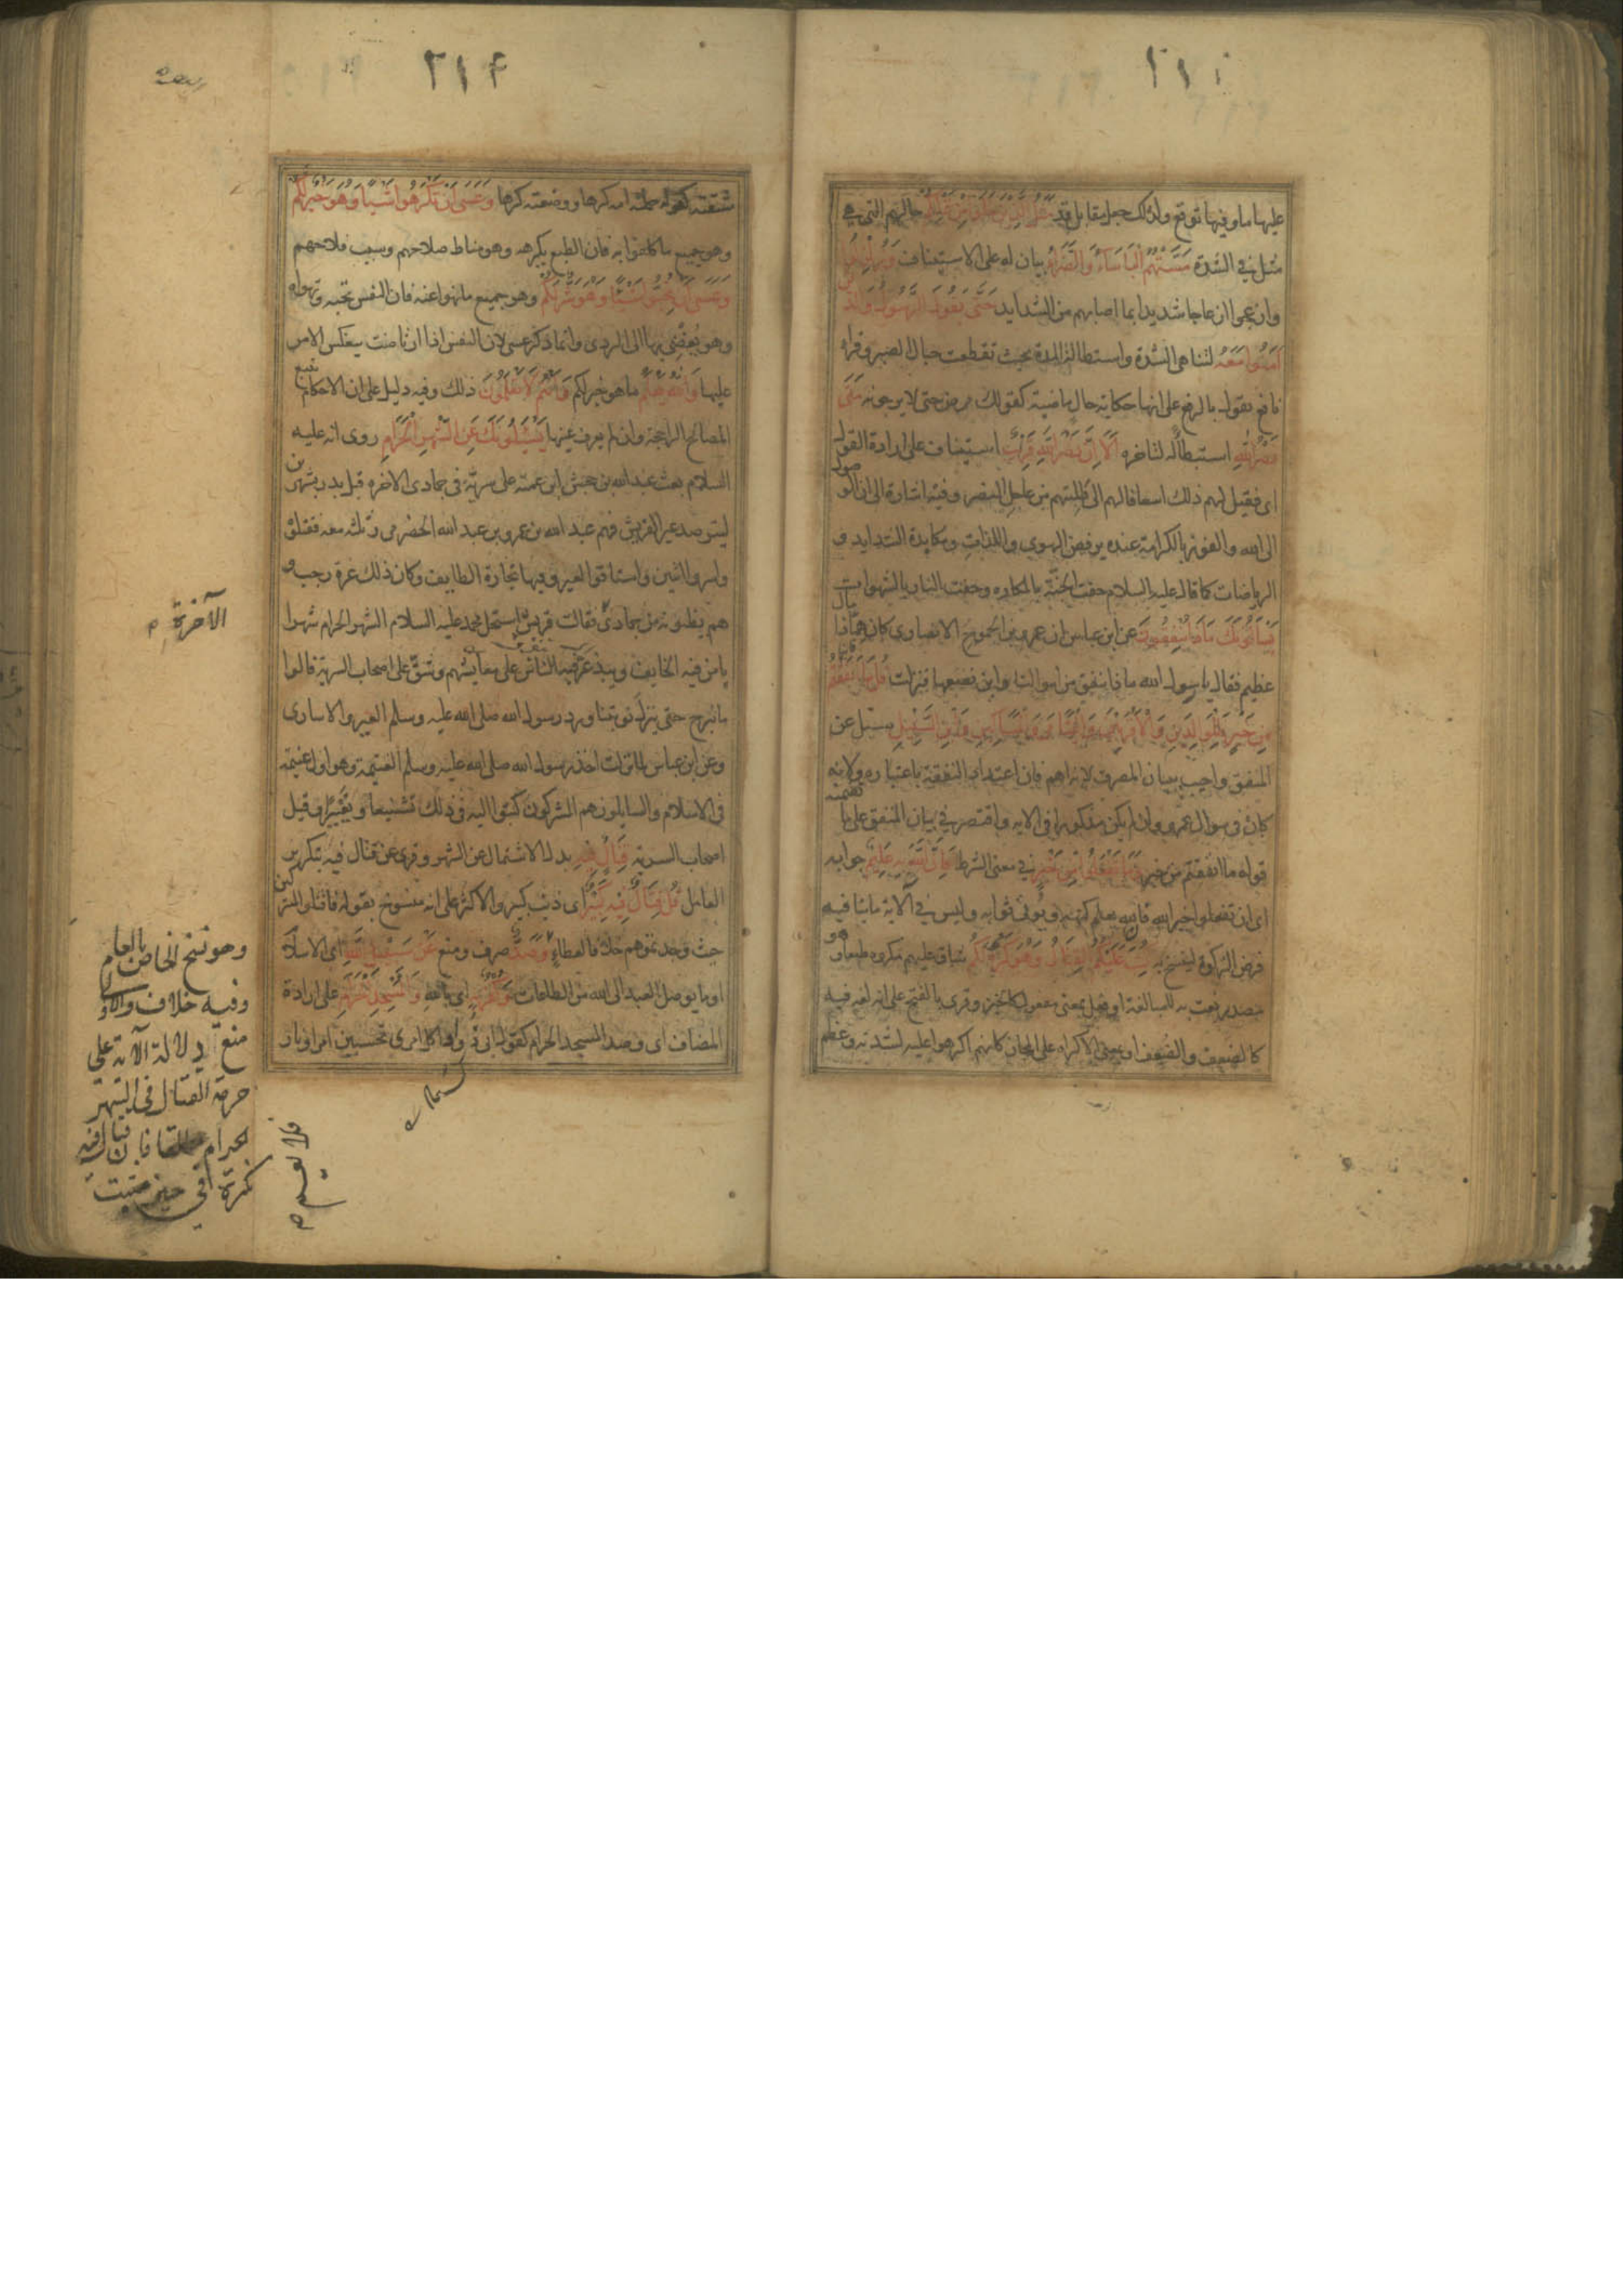 عليها ما وفيها توقع ولذلك جعل مقابل قد مثل الذين خلوا من قبلكم حالهم التي هي
مثل في الشدة مستهم البأساء والضراء بيان له على الاستيناف وزلزلوا
وازعجوا ازعاجا شديدا بما اصابهم من الشدايد حتى يقول الرسول والذين
آمنوا معه لتناهى الشدة واستطالة المدة بحيث تقطعت حبال الصبر وقرأ
نافع يقول بالرفع على انها حكاية حال ماضية كقولك مرض حتى لا يرجونه متى
نصر الله استبطاء له لتاخره الا ان نصر الله قريب استيناف على ارادة القول
اى فقيل لهم ذلك اسعافا لهم الى طلبتهم من عاجل النصر وفيه اشارة الى ان الوصول
الى الله والفوز بالكرامة عنده برفض الهوى واللذات ومكابدة الشدايد و
الرياضات كما قال عليه السلام حفت الجنة بالمكاره وحفت النار بالشهوات
يسألونك ماذا ينفقون عن ابن عباس ان عمرو بن الجموح الانصارى كان هما ذا مال
عظيم فقال يا رسول الله ماذا ننفق من اموالنا واين نضعها فنزلت قل ما انفقتم
من خير فللوالدين والاقربين واليتامى والمساكين وابن السبيل سئل عن
المنفق واجيب ببيان المصرف لانه اهم فان اعتداد النفقة باعتباره ولانه
كان فى سوال عمرو وان لم يكن مذكورا فى الايه واقتصر فى بيان المنفق على ما تضمنه
قوله ما انفقتم من خير وما تفعلوا من خير فى معنى الشرط فان الله به عليم جوابه
اى ان تفعلوا خيرا فان الله يعلم كنهه ويوفى ثوابه وليس فى الآية ما ينافيه
فرض الزكوة لينسخ به كتب عليكم القتال وهو كره لكم شاق عليهم مكروه طبعا وهو
مصدر نعت به للمبالغة او فعل بمعنى مفعول كالخبز وقرى بالفتح على انه لغة فيه
كالضعف والضعف او بمعنى الاكراه على المجاز كانهم اكرهوا عليه لشدته وعظم
٢١٤
مشقته كقوله حملته امه كرها ووضعته كرها وعسى ان تكرهوا شيئا وهو خير لكم
وهو جميع ما كلفوا به فان الطبع يكرهه وهو مناط صلاحهم وسبب فلاحهم
وعسى ان تحبوا شيئا وهو شر لكم وهو جميع ما نهوا عنه فان النفس تحبه وتهواه
وهو يفضى بها الى الردى وانما ذكر عسى لان النفس اذا ارتاضت ينعكس الامر
عليها والله يعلم ما هو خير لكم وانتم لا تعلمون ذلك وفيه دليل على ان الاحكام تتبع
المصالح الراجحة وان لم يعرف عينها يسئلونك عن الشهر الحرام روى انه عليه
السلام بعث عبد الله بن جحش ابن عمته على سرية فى جمادى الاخره قبل بدر بشهرين
ليترصد عير القريش فيهم عبد الله بن عمرو بن عبد الله الحضرمى وثلثه معه فقتلوه
واسروا اثنين واستاقوا العير وفيها تجارة الطايف وكان ذلك غرة رجب و
هم يظنونه من جمادى فقالت قريش استحل محمد عليه السلام الشهر الحرام شهرا
يامن فيه الخايف ويبذعر فيه الناس على معايشهم وشق على اصحاب السرية قالوا
ما نبرح حتى ينزل توبتنا ورد رسول الله صلى الله عليه وسلم العير والاسارى
وعن ابن عباس لما نزلت اخذ رسول الله صلى الله عليه وسلم الغنيمة وهو اول غنيمة
فى الاسلام والسايلون هم المشركون كتبوا اليه فى ذلك تشنيعا وتعييرا وقيل
اصحاب السرية قتال فيه بدل الاشتمال عن الشهر وقرى عن قتال فيه بتكرير
العامل قل قتال فيه كبير اى ذنب كبير والاكثر على انه منسوخ بقوله فاقتلوا المشركين
حيث وجدتموهم خلافا لعطاء وصد صرف ومنع عن سبيل الله اى الاسلام
او ما يوصل العبد الى الله من الطاعات وكفر به اى بالله والمسجد الحرام على ارادة
المضاف اى وصد المسجد الحرام كقول ابى دواد اكل امرئ تحسبين امرا ونار
الآخرة
وهو نسخ الخاص بالعام
وفيه خلاف والاولى
منع دلالة الآية على
حرمة القتال فى الشهر
الحرام مطلقا فان قتال فيه
نكرة فى حيز مثبت
فلا يعم